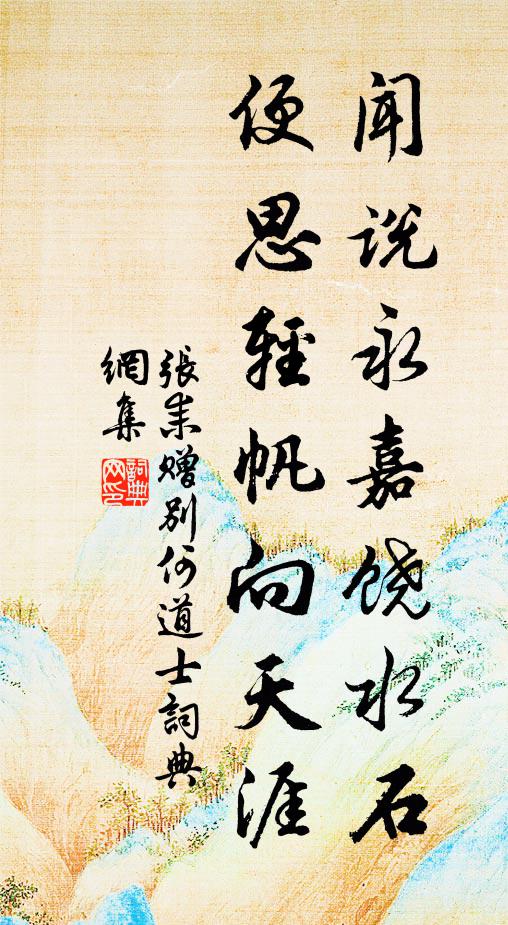 闻说永嘉饶水石
便思轻帆向天涯
張耒赠别何道士詞典
網集
詞典
网印